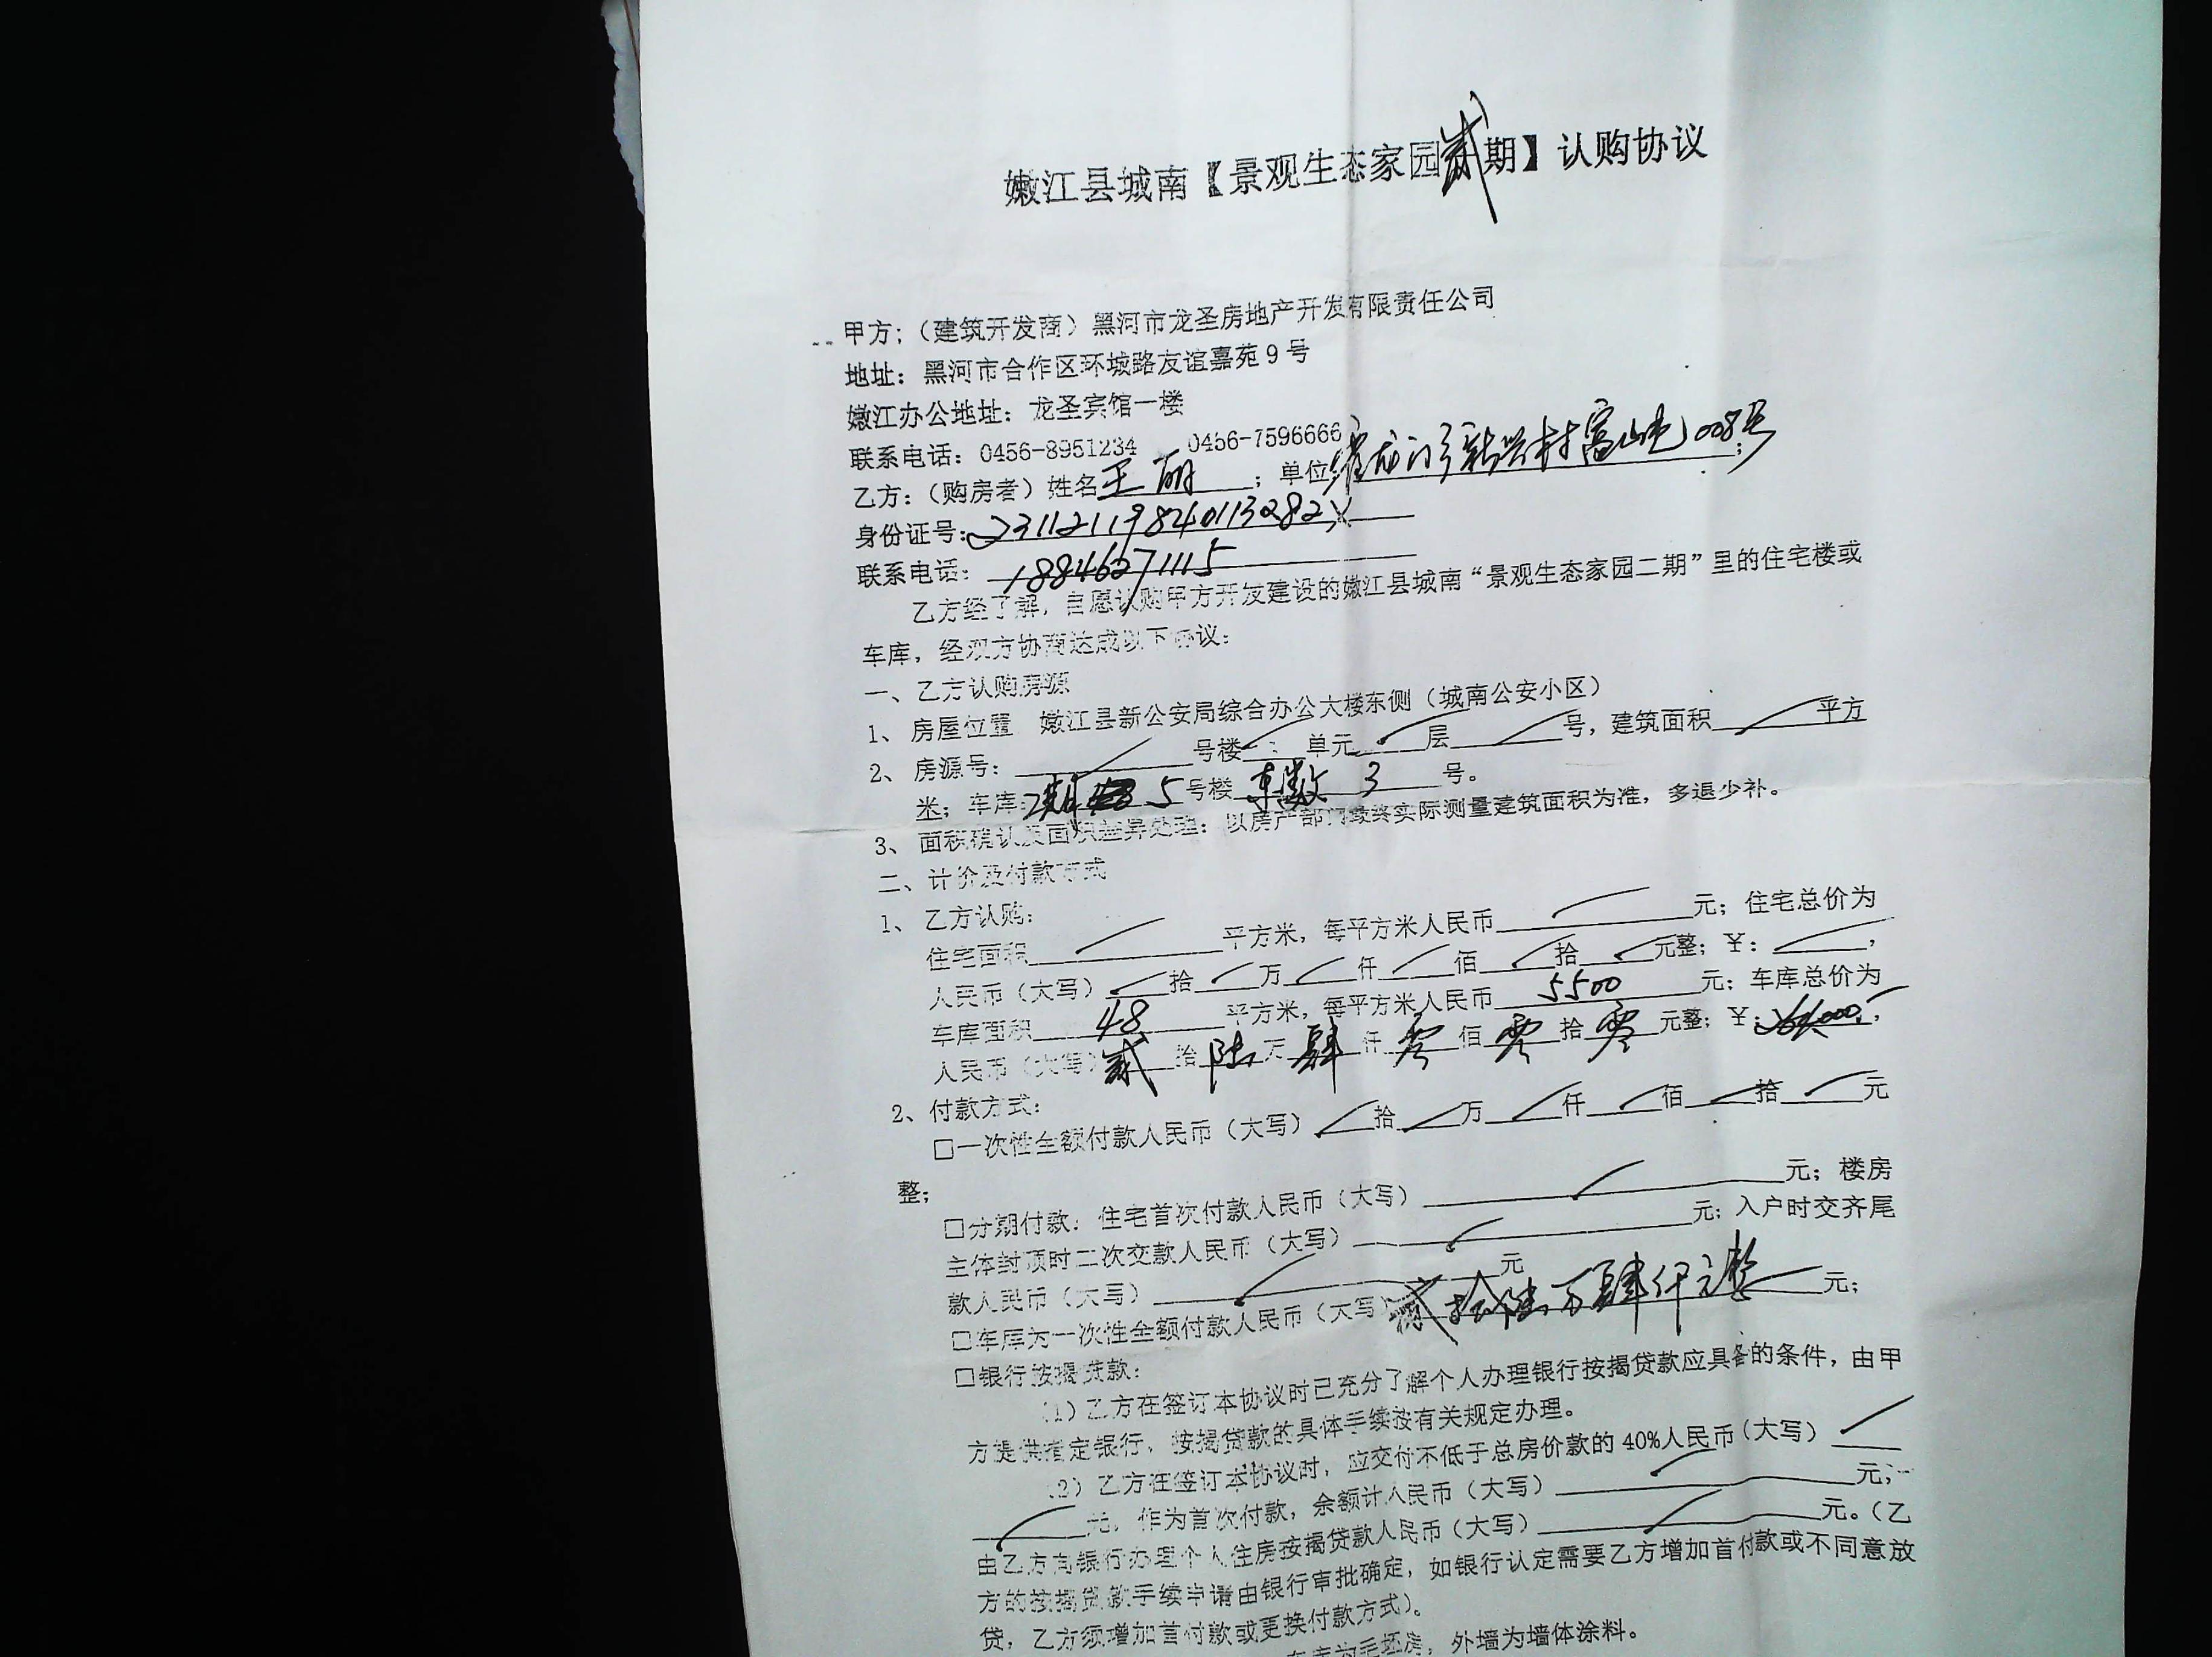 嫩江县城南【景观生态家园贰期】认购协议
甲方：（建筑开发商）黑河市龙圣房地产开发有限责任公司
地址：黑河市合作区环城路友谊嘉苑9号
嫩江办公地址：龙圣宾馆一楼
联系电话：0456-8951234 0456-7596666
乙方：（购房者）姓名王丽；单位 龙门 新兴村富山屯008号；
身份证号：23112119840113282X
联系电话：18846271115
乙方经了解，自愿认购甲方开发建设的嫩江县城南“景观生态家园二期”里的住宅楼或
车库，经双方协商达成以下协议：
一、乙方认购房源
1、房屋位置 嫩江县新公安局综合办公大楼东侧（城南公安小区）
2、房源号： 号楼 单元 层 号，建筑面积 平方
米；车库：2期 5号楼 3 号。
3、面积确认及面积差异处理：以房产部门最终实际测量建筑面积为准，多退少补。
二、计价及付款方式
1、乙方认购：
住宅面积 平方米，每平方米人民币 元；住宅总价为
人民币（大写） 拾 万 仟 佰 拾 元整；¥： ，
车库面积 48 平方米，每平方米人民币 5500 元；车库总价为
人民币（大写）贰拾陆万肆仟零佰零拾零元整；¥：264000，
2、付款方式：
□一次性全额付款人民币（大写） 拾 万 仟 佰 拾 元
整；
□分期付款：住宅首次付款人民币（大写） 元；楼房
主体封顶时二次交款人民币（大写） 元；入户时交齐尾
款人民币（大写） 元
□车库为一次性全额付款人民币（大写）贰拾陆万肆仟元整 元；
□银行按揭贷款：
（1）乙方在签订本协议时已充分了解个人办理银行按揭贷款应具备的条件，由甲
方提供指定银行，按揭贷款的具体手续按有关规定办理。
（2）乙方在签订本协议时，应交付不低于总房价款的40%人民币（大写）
元，作为首次付款，余额计人民币（大写） 元；
由乙方向银行办理个人住房按揭贷款人民币（大写） 元。（乙
方的按揭贷款手续申请由银行审批确定，如银行认定需要乙方增加首付款或不同意放
贷，乙方须增加首付款或更换付款方式）。
车库为毛坯房，外墙为墙体涂料。